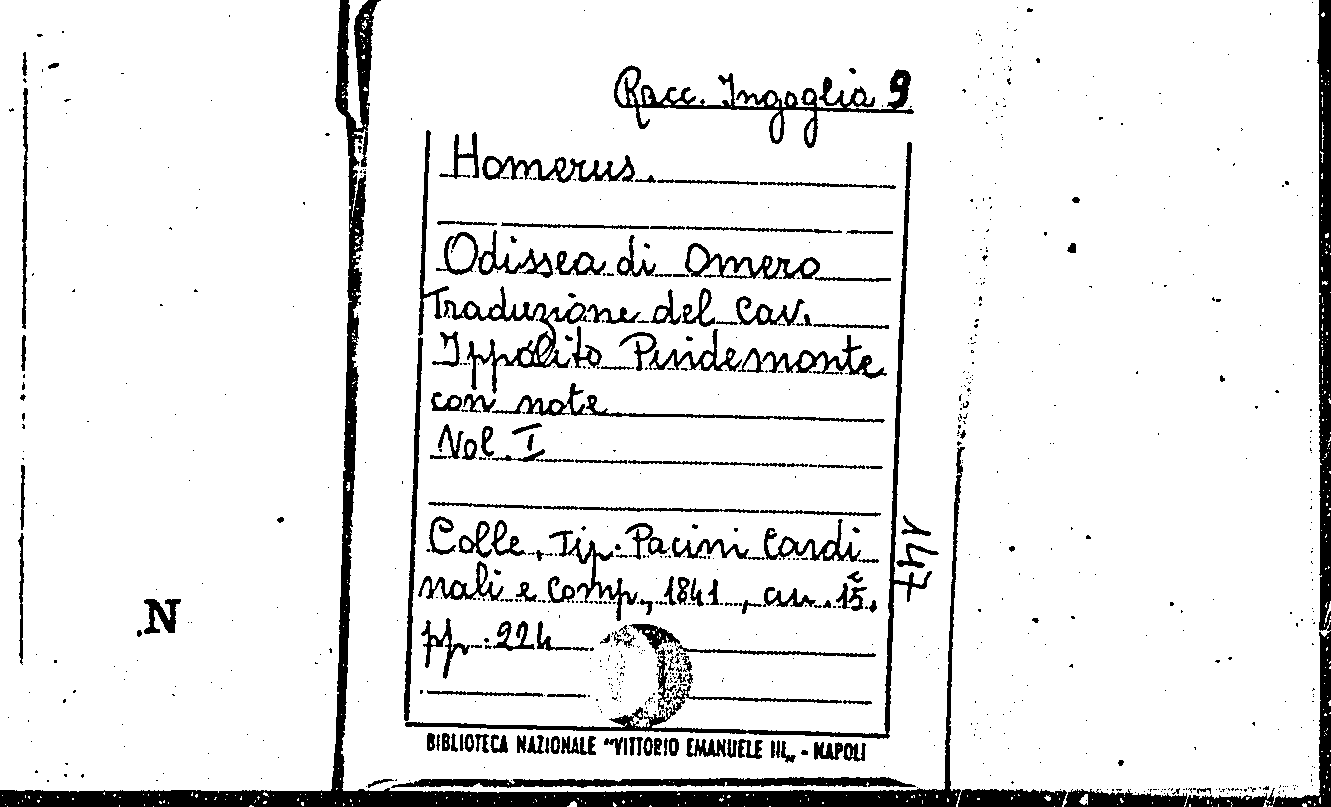 Racc. Ingoglia 9
Homerus.
Odissea di Omero
Traduzione del Cav.
Ippolito Pindemonte
con note
Vol. I
Colle, Tip. Pacini Cardi
nali e comp., 1841, cm. 15.
pp. 224
147
BIBLIOTECA NAZIONALE "VITTORIO EMANUELE III„ - NAPOLI
.N